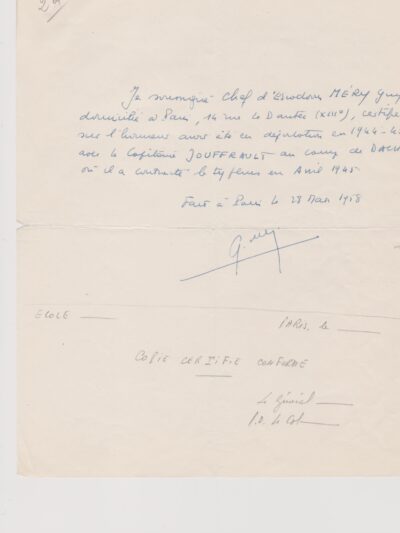 29
Je soussigné Chef d'Escadron MÉRY Guy
domicilié à Paris, 14 rue Le Dantec (XIIIe), certifie
sur l'honneur avoir été en déportation en 1944-45
avec le Capitaine JOUFFRAULT au camp de DACH
où il a contracté le typhus en Avril 1945
Fait à Paris le 28 Mars 1958
G. Méry
ECOLE
PARIS, le
COPIE CERTIFIE CONFORME
Le Général
P.O. Le Col